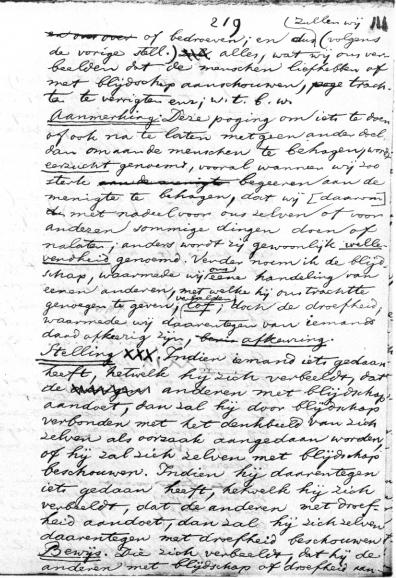 219
(zullen wij
of bedroeven; en dus (volgens
de vorige stell.) alles, wat wij ons ver-
beelden dat de menschen liefhebben of
met blijdschap aanschouwen, trach-
te te verrigten enz; w.t.b.w.
Aanmerking. Deze poging om iets te doen
of ook na te laten met geen ander doel
dan om aan de menschen te behagen, wordt
eerzucht genoemd, vooral wanneer wij zoo
sterk aan de menigte begeeren aan de
menigte te behagen, dat wij [daarom]
met nadeel voor ons zelven of voor
anderen sommige dingen doen of
nalaten; anders wordt zij gewoonlijk welle-
vendheid genoemd. Verder noem ik de blijd-
schap, waarmede wij ons eene handeling van
eenen anderen, met welke hij ons trachtte
genoegen te geven, verbeelden, lof; doch de droefheid,
waarmede wij daarentegen van iemands
daad afkeerig zijn, afkeuring.
Stelling XXX. Indien iemand iets gedaan
heeft, hetwelk hij zich verbeeldt, dat
de anderen met blijdschap
aandoet, dan zal hij door blijdschap
verbonden met het denkbeeld van zich
zelven als oorzaak aangedaan worden,
of hij zal zich zelven met blijdschap
beschouwen. Indien hij daarentegen
iets gedaan heeft, hetwelk hij zich
verbeeldt, dat de anderen met droef-
heid aandoet, dan zal hij zich zelven
daarentegen met droefheid beschouwen.
Bewijs. Die zich verbeeldt, dat hij de
anderen met blijdschap of droefheid aan-